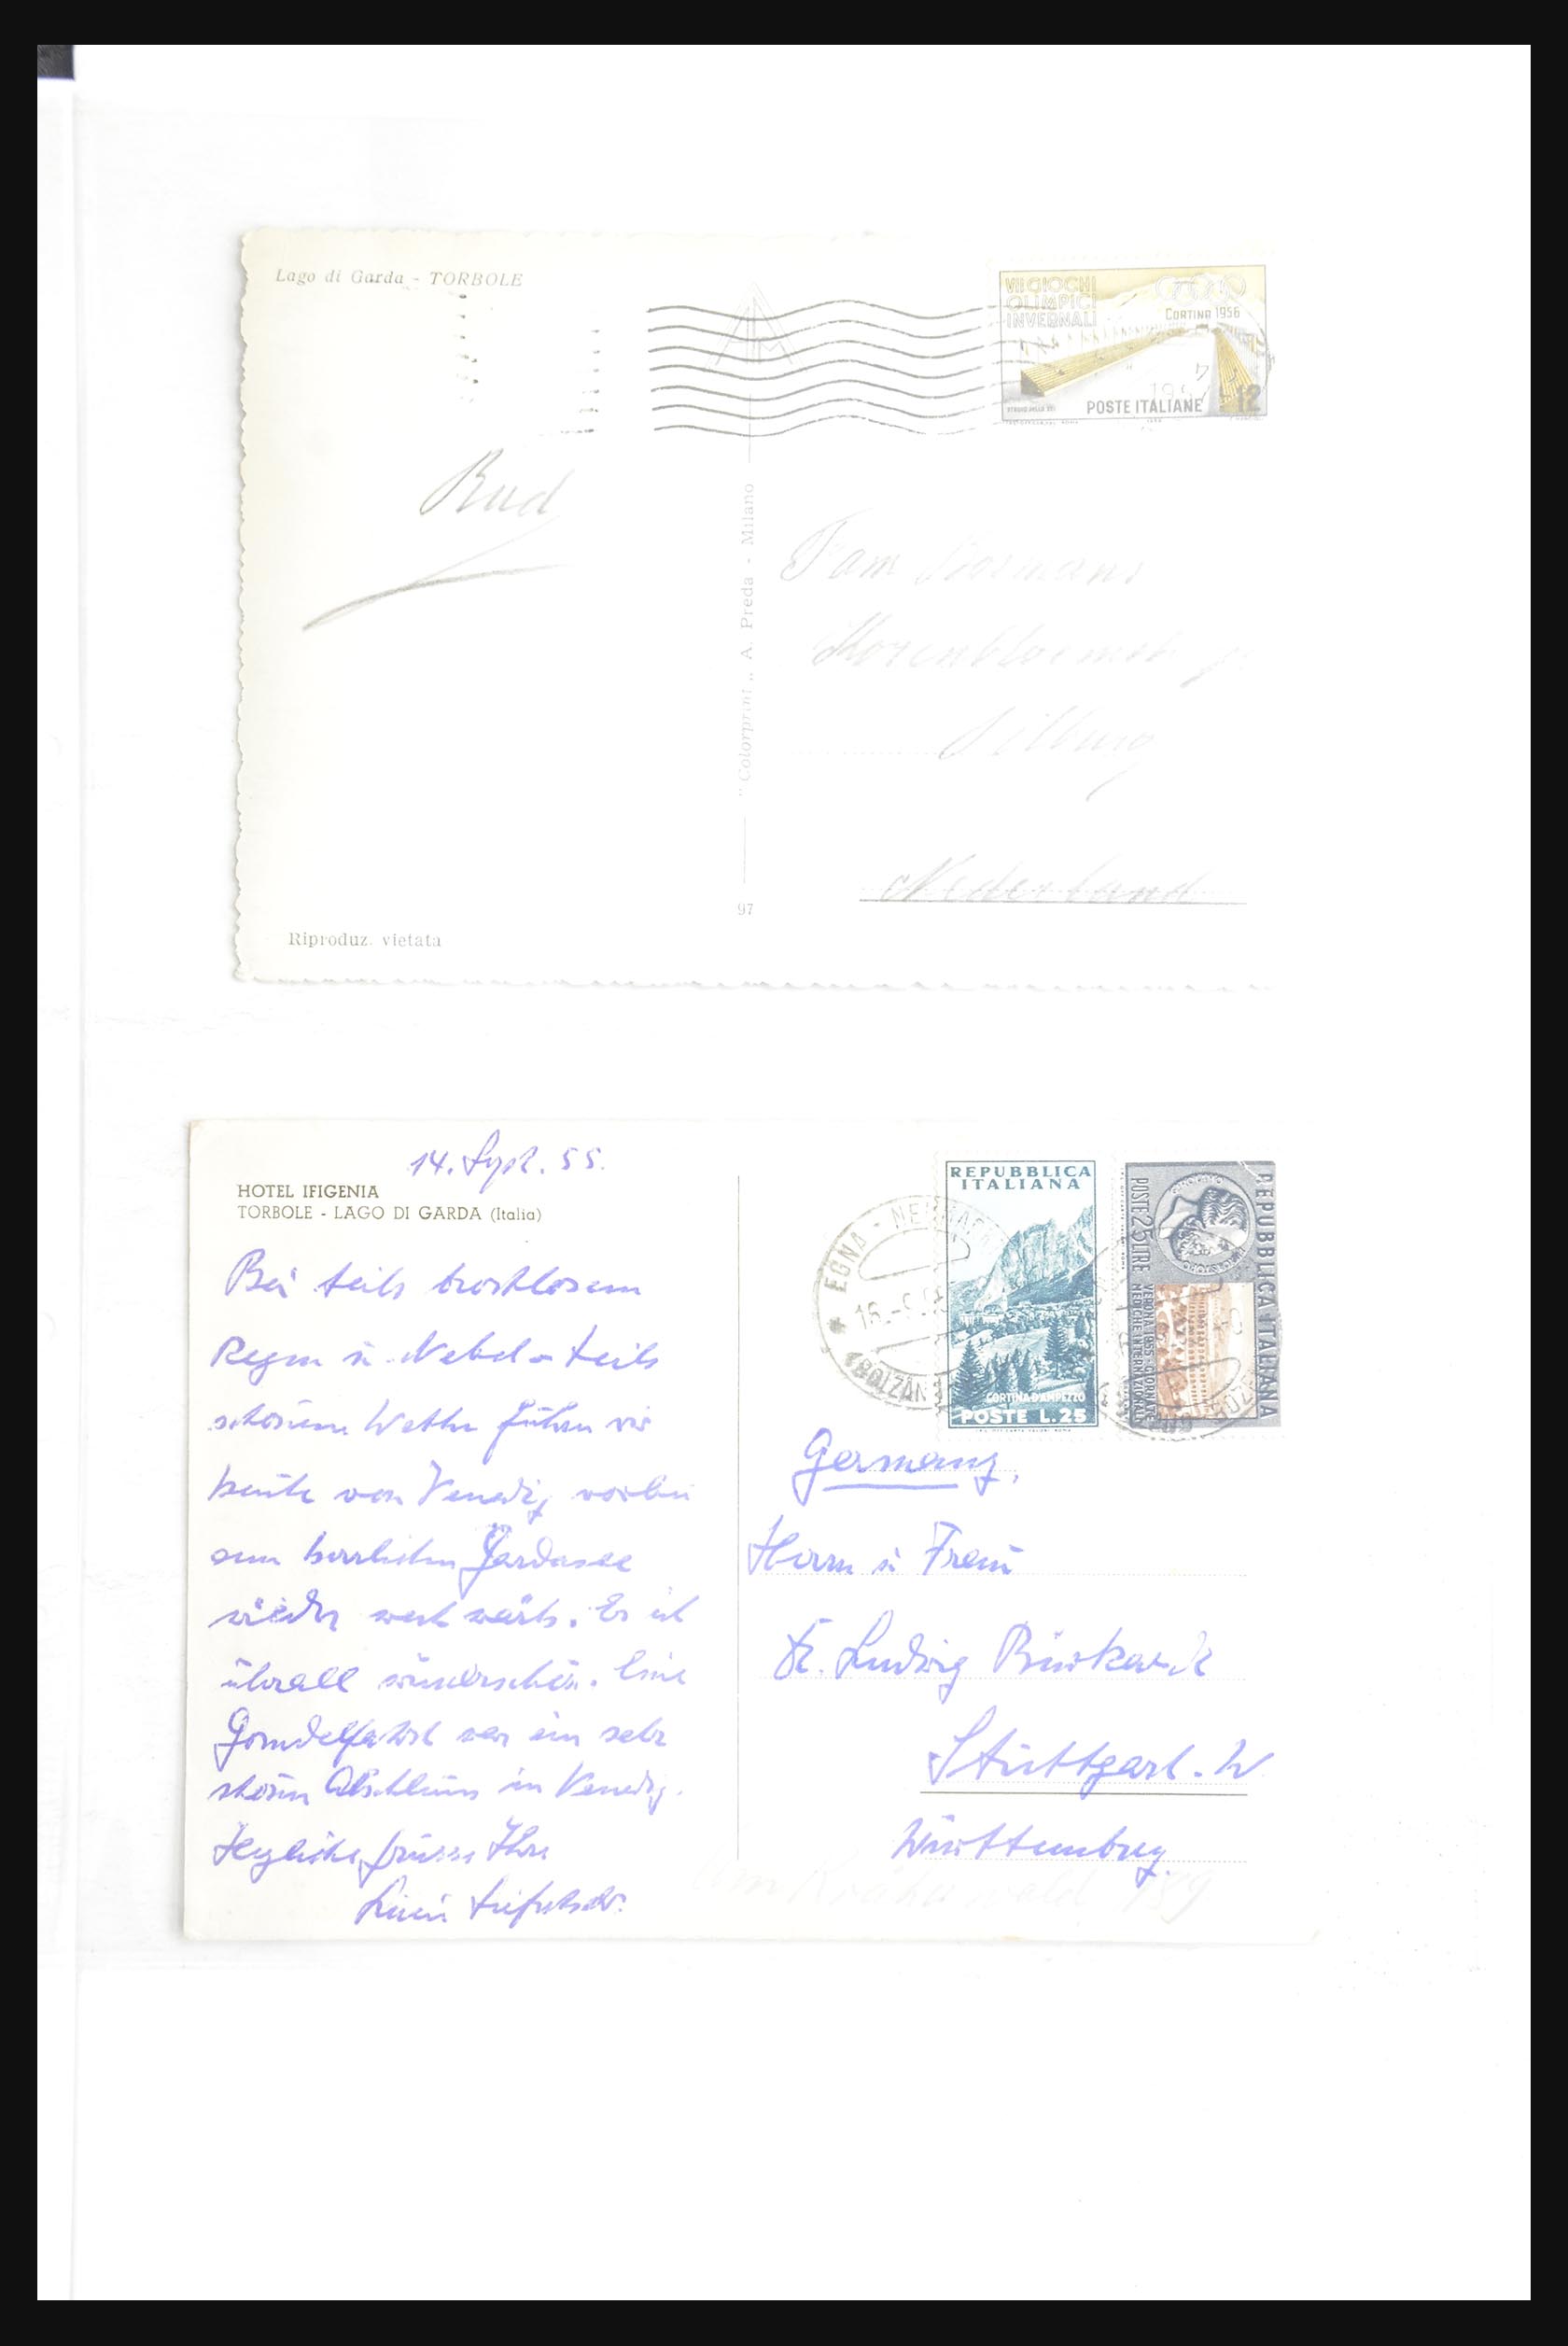 Lago di Garda - TORBOLE
VII GIOCHI
OLIMPICI
INVERNALI
CORTINA 1956
POSTE ITALIANE 12
Rud
"Colorprint" A. Preda - Milano
Fam
Tilburg
Nederland
97
Riproduz. vietata
14. Sept. 55.
HOTEL IFIGENIA
TORBOLE - LAGO DI GARDA (Italia)
Bei teils trostlosem
Regen u. Nebel - teils
schönem Wetter fuhren wir
heute von Venedig vorbei
am herrlichen Gardasee
wieder westwärts. Es ist
überall wunderschön. Eine
Gondelfahrt war ein sehr
schöner Abschluss in Venedig.
Herzliche Grüsse Ihre
REPUBBLICA
ITALIANA
CORTINA D'AMPEZZO
POSTE L.25
REPUBBLICA ITALIANA
POSTE 25 LIRE
VERONA 1955 - GIORNATE
MEDICHE INTERNAZIONALI
EGNA - NEUMARKT
16.-9.55
(BOLZANO
Germany.
Herrn u Frau
Dr. Ludwig Burkardt
Stuttgart. W
Württemberg